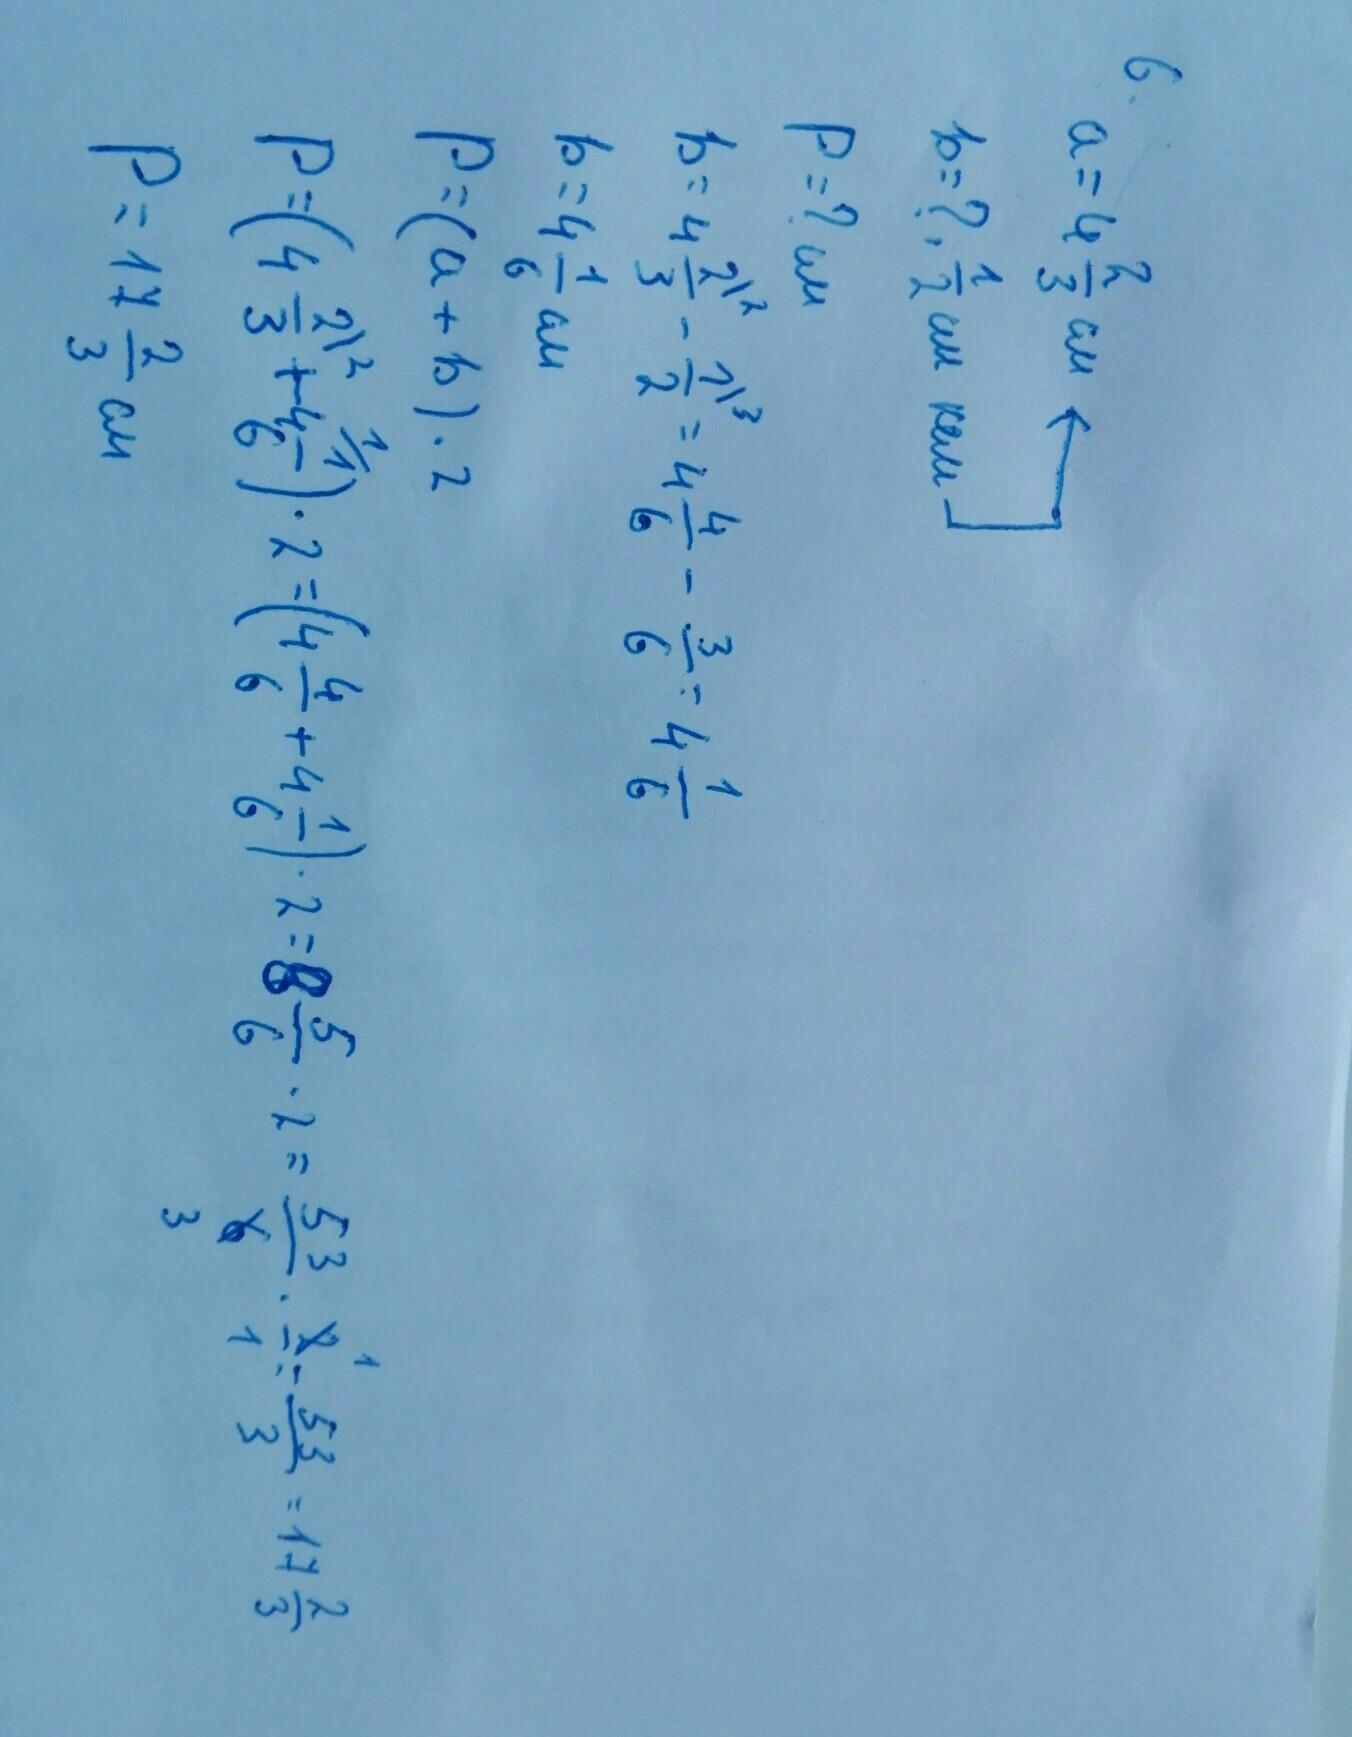 6.
a = 4 2/3 см
b = ?, 1/2 см кем
P = ? см
b = 4 2\2/3 - 1\3/2 = 4 4/6 - 3/6 = 4 1/6
b = 4 1/6 см
P = (a + b) · 2
P = (4 2\2/3 + 4 1\1/6) · 2 = (4 4/6 + 4 1/6) · 2 = 8 5/6 · 2 = 53/6 3 · 2 1/1 = 53/3 = 17 2/3
P = 17 2/3 см